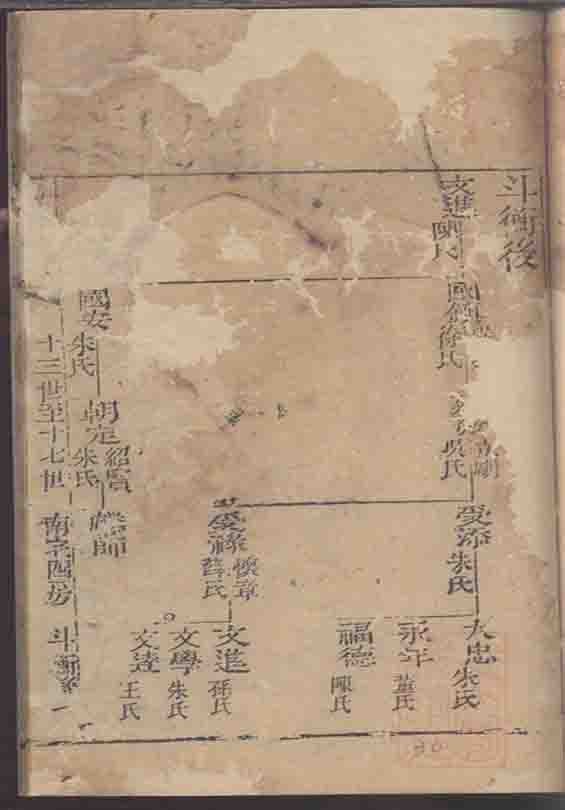 斗衡後
文進
陳氏
國
徐氏
吳氏
愛添
朱氏
大忠
朱氏
永年
董氏
福德
陳氏
愛祿
懷章
薛氏
文進
孫氏
文學
朱氏
文達
王氏
國安
朱氏
朝定
紹賢
朱氏
師
十三世至十七世
南京四房
斗
一
30